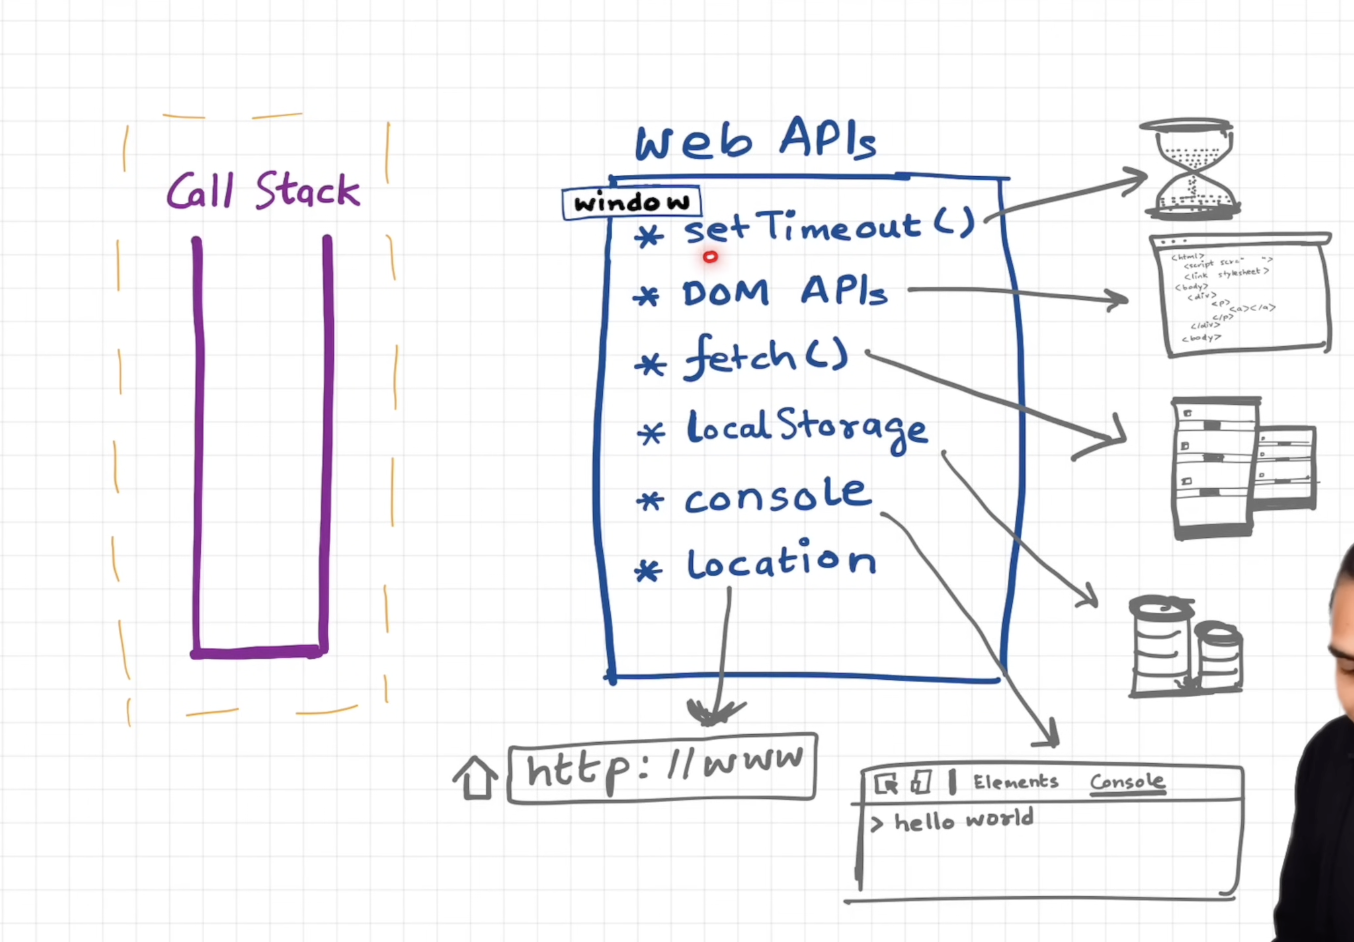 Call Stack
Web APIs
window
* setTimeout()
* DOM APIs
* fetch()
* localStorage
* console
* location
<html>
<link stylesheet>
<body>
<div>
<p>
<a></a>
</p>
</div>
<body>
http://www
Elements Console
> hello world